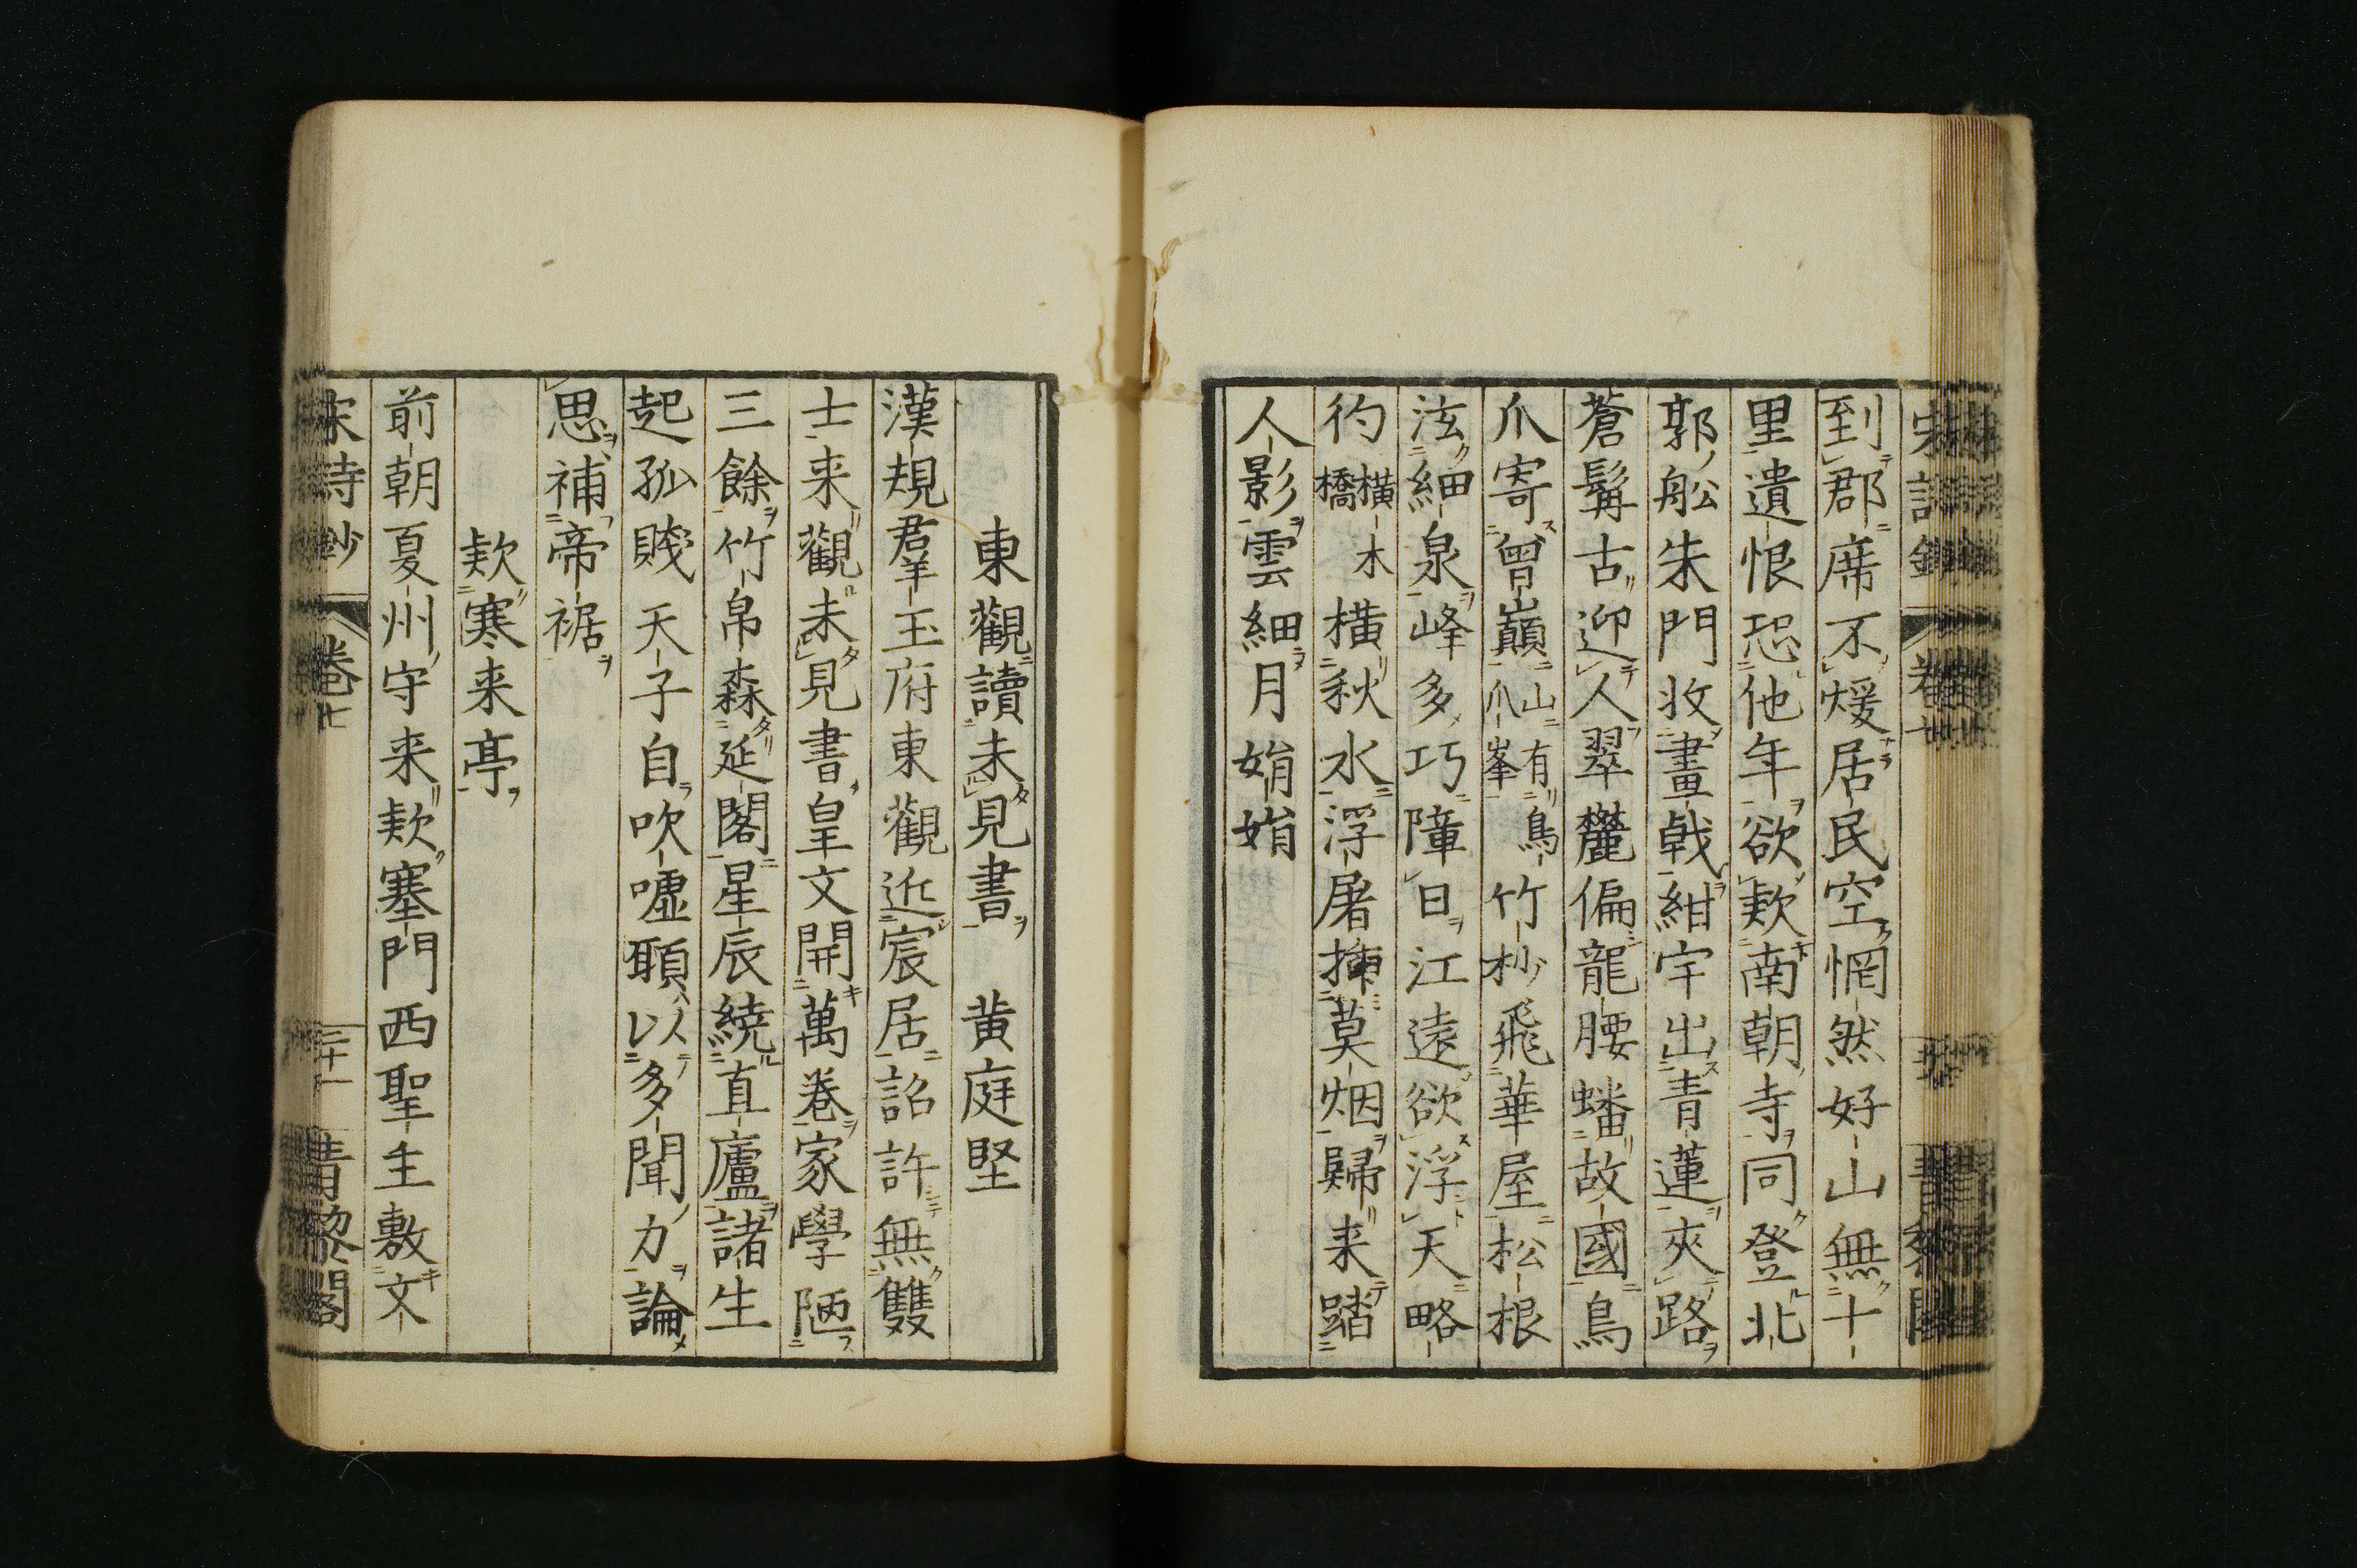 到郡席不煖居民空惘然好山無十
里遺恨恐他年欲欵南朝寺同登北
郭舩朱門收畫戟紺宇出青蓮夾路
蒼髯古迎人翠麓偏龍腰蟠故國鳥
爪寄曾巔山有鳥爪峯竹杪飛華屋松根
泫細泉峰多巧障日江遠欲浮天略
彴橫木橫橋橫秋水浮屠揷莫烟歸来踏
人影雲細月娟娟
東觀讀未見書 黄庭堅
漢規羣玉府東觀近宸居詔許無雙
士来觀未見書皇文開萬卷家學陋
三餘竹帛森延閣星辰繞直廬諸生
起孤賤天子自吹噓願以多聞力論
思補帝裾
欵寒来亭
前朝夏州守来欵塞門西聖主敷文
宋詩鈔 卷七 三十一 青黎閣